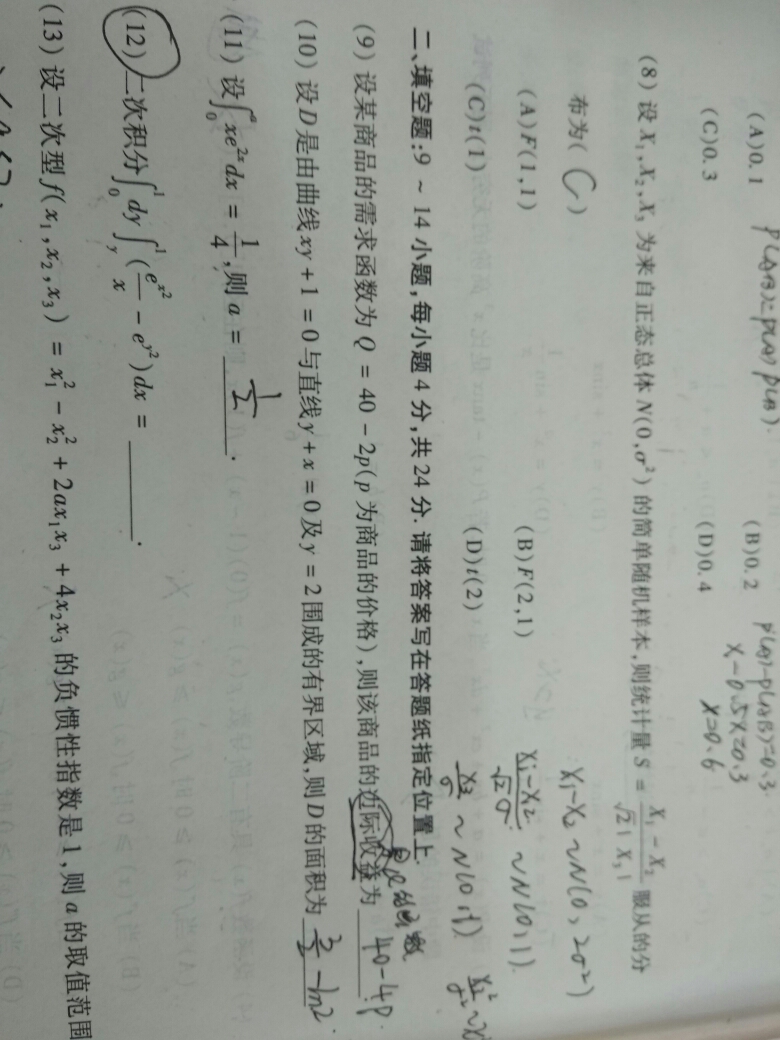 P(AB)=P(A)P(B).
(A)0.1 (B)0.2 P(A)-P(AB)=0.3.
(C)0.3 (D)0.4 x-0.5x=0.3
x=0.6
(8) 设 X₁,X₂,X₃ 为来自正态总体 N(0,σ²) 的简单随机样本,则统计量 S = (X₁ - X₂)/(√2|X₃|) 服从的分
布为( C ) X₁-X₂ ~ N(0, 2σ²)
(A)F(1,1) (B)F(2,1) (X₁-X₂)/(√2σ) ~ N(0,1).
(C)t(1) (D)t(2) X₃/σ ~ N(0,1)
二、填空题:9 ~ 14 小题,每小题 4 分,共 24 分. 请将答案写在答题纸指定位置上.
(9) 设某商品的需求函数为 Q = 40 - 2p(p 为商品的价格),则该商品的边际收益为 40-4p.
(10) 设 D 是由曲线 xy + 1 = 0 与直线 y + x = 0 及 y = 2 围成的有界区域,则 D 的面积为 3/2-ln2.
(11) 设∫₀ᵃ xe²ˣdx = 1/4,则 a = 1/2.
(12) 二次积分∫₀¹dy∫ᵧ¹(eˣ²/x - eʸ²)dx = ______.
(13) 设二次型 f(x₁,x₂,x₃) = x₁² - x₂² + 2ax₁x₃ + 4x₂x₃ 的负惯性指数是 1,则 a 的取值范围